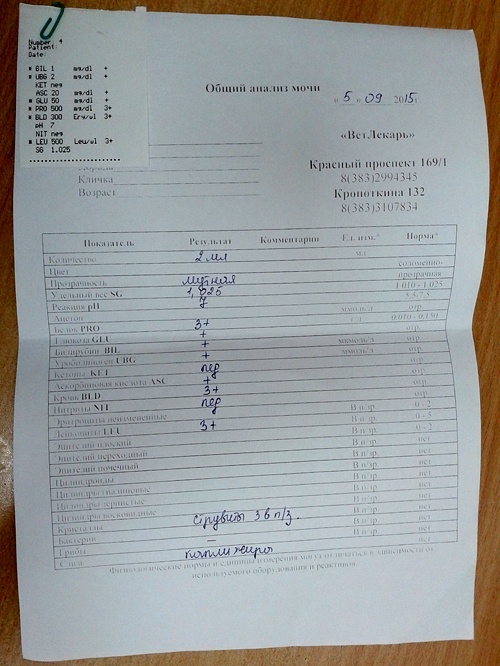 Number: 4
Patient:
Date:
* BIL 1 mg/dl +
* UBG 2 mg/dl +
KET neg
ASC 20 mg/dl +
* GLU 50 mg/dl +
* PRO 500 mg/dl 3+
* BLD 300 Ery/ul 3+
pH 7
NIT neg
* LEU 500 Leu/ul 3+
SG 1.025
Общий анализ мочи
« 5 » 09 2015г.
«ВетЛекарь»
Красный проспект 169/1
8(383)2994345
Кличка
Кропоткина 132
Возраст
8(383)3107834
Показатель Результат Комментарии Ед. изм.* Норма*
Количество 2 мл мл
Цвет соломенно-
Прозрачность мутная прозрачная
Удельный вес SG 1,025 1.010 - 1.025
Реакция pH 7 5.5-7.5
Ацетон ммоль/л отр.
Белок PRO 3+ г/л 0.010 - 0.150
Глюкоза GLU + ммоль/л отр.
Билирубин BIL + ммоль/л отр.
Уробилиноген UBG + отр.
Кетоны KET neg
Аскорбиновая кислота ASC + отр.
Кровь BLD 3+ отр.
Нитриты NIT neg отр.
Эритроциты неизмененные В п/зр. 0 - 2
Лейкоциты LEU 3+ В п/зр. 0 - 3
Эпителий плоский В п/зр. 0 - 2
Эпителий переходный В п/зр. нет
Эпителий почечный В п/зр. нет
Цилиндроиды В п/зр. нет
Цилиндры гиалиновые В п/зр. нет
Цилиндры зернистые В п/зр. нет
Цилиндры восковидные В п/зр. нет
Кристаллы струвиты 3 в п/з. В п/зр. нет
Бактерии – В п/зр. нет
Грибы В п/зр. нет
Слизь капли жира нет
Физиологические нормы и единицы измерения могут отличаться в зависимости от
используемого оборудования и реактивов